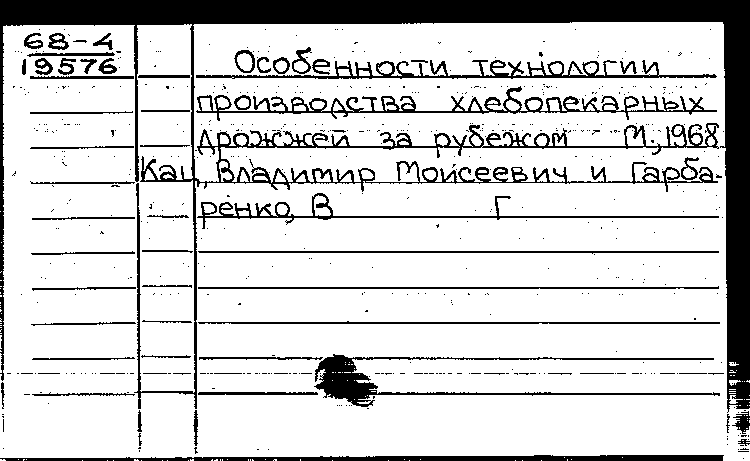 68-4
19576
Особенности технологии
производства хлебопекарных
дрожжей за рубежом М., 1968
Кац, Владимир Моисеевич и Гарба-
ренко, В Г